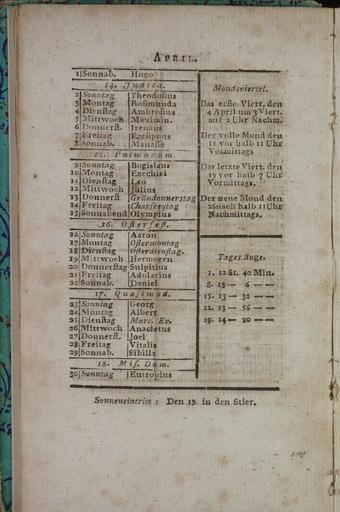 April.
1 Sonnab. Hugo
14. Judica.
2 Sonntag Theodosius
3 Montag Rosimunda
4 Dienstag Ambrosius
5 Mittwoch Maximin.
6 Donnerst. Irenäus
7 Freitag Egesippus
8 Sonnab. Manasse
15. Palmarum.
9 Sonntag Bogislaus
10 Montag Ezechiel
11 Dienstag Leo
12 Mittwoch Julius
13 Donnerst Gründonnerstag
14 Freitag Charfreytag
15 Sonnabend Olympius
16. Osterfest.
16 Sonntag Aaron
17 Montag Ostermontag
18 Dienstag Osterdienstag.
19 Mittwoch Hermogen
20 Donnerstag Sulpitius
21 Freitag Adolarius
22 Sonnab. Daniel
17. Quasimod.
23 Sonntag Georg
24 Montag Albert
25 Dienstag Marc. Ev.
26 Mittwoch Anacletus
27 Donnerst. Joel
28 Freitag Vitalis
29 Sonnab. Sibilla
18. Mis. Dom.
30 Sonntag Eutropius
Mondsviertel.
Das erste Viert. den
4 April um 3 Viert.
auf 2 Uhr Nachm.
Der volle Mond den
11 vor halb 11 Uhr
Vormittags
Das letzte Viert. den
19 vor halb 7 Uhr
Vormittags.
Der neue Mond den
26 nach halb 11 Uhr
Nachmittags.
Tageslänge.
1. 12 St. 40 Min.
8. 13 — 6 — —
15. 13 — 32 — —
22. 13 — 56 — —
29. 14 — 20 — —
Sonneneintritt : Den 19. in den Stier.